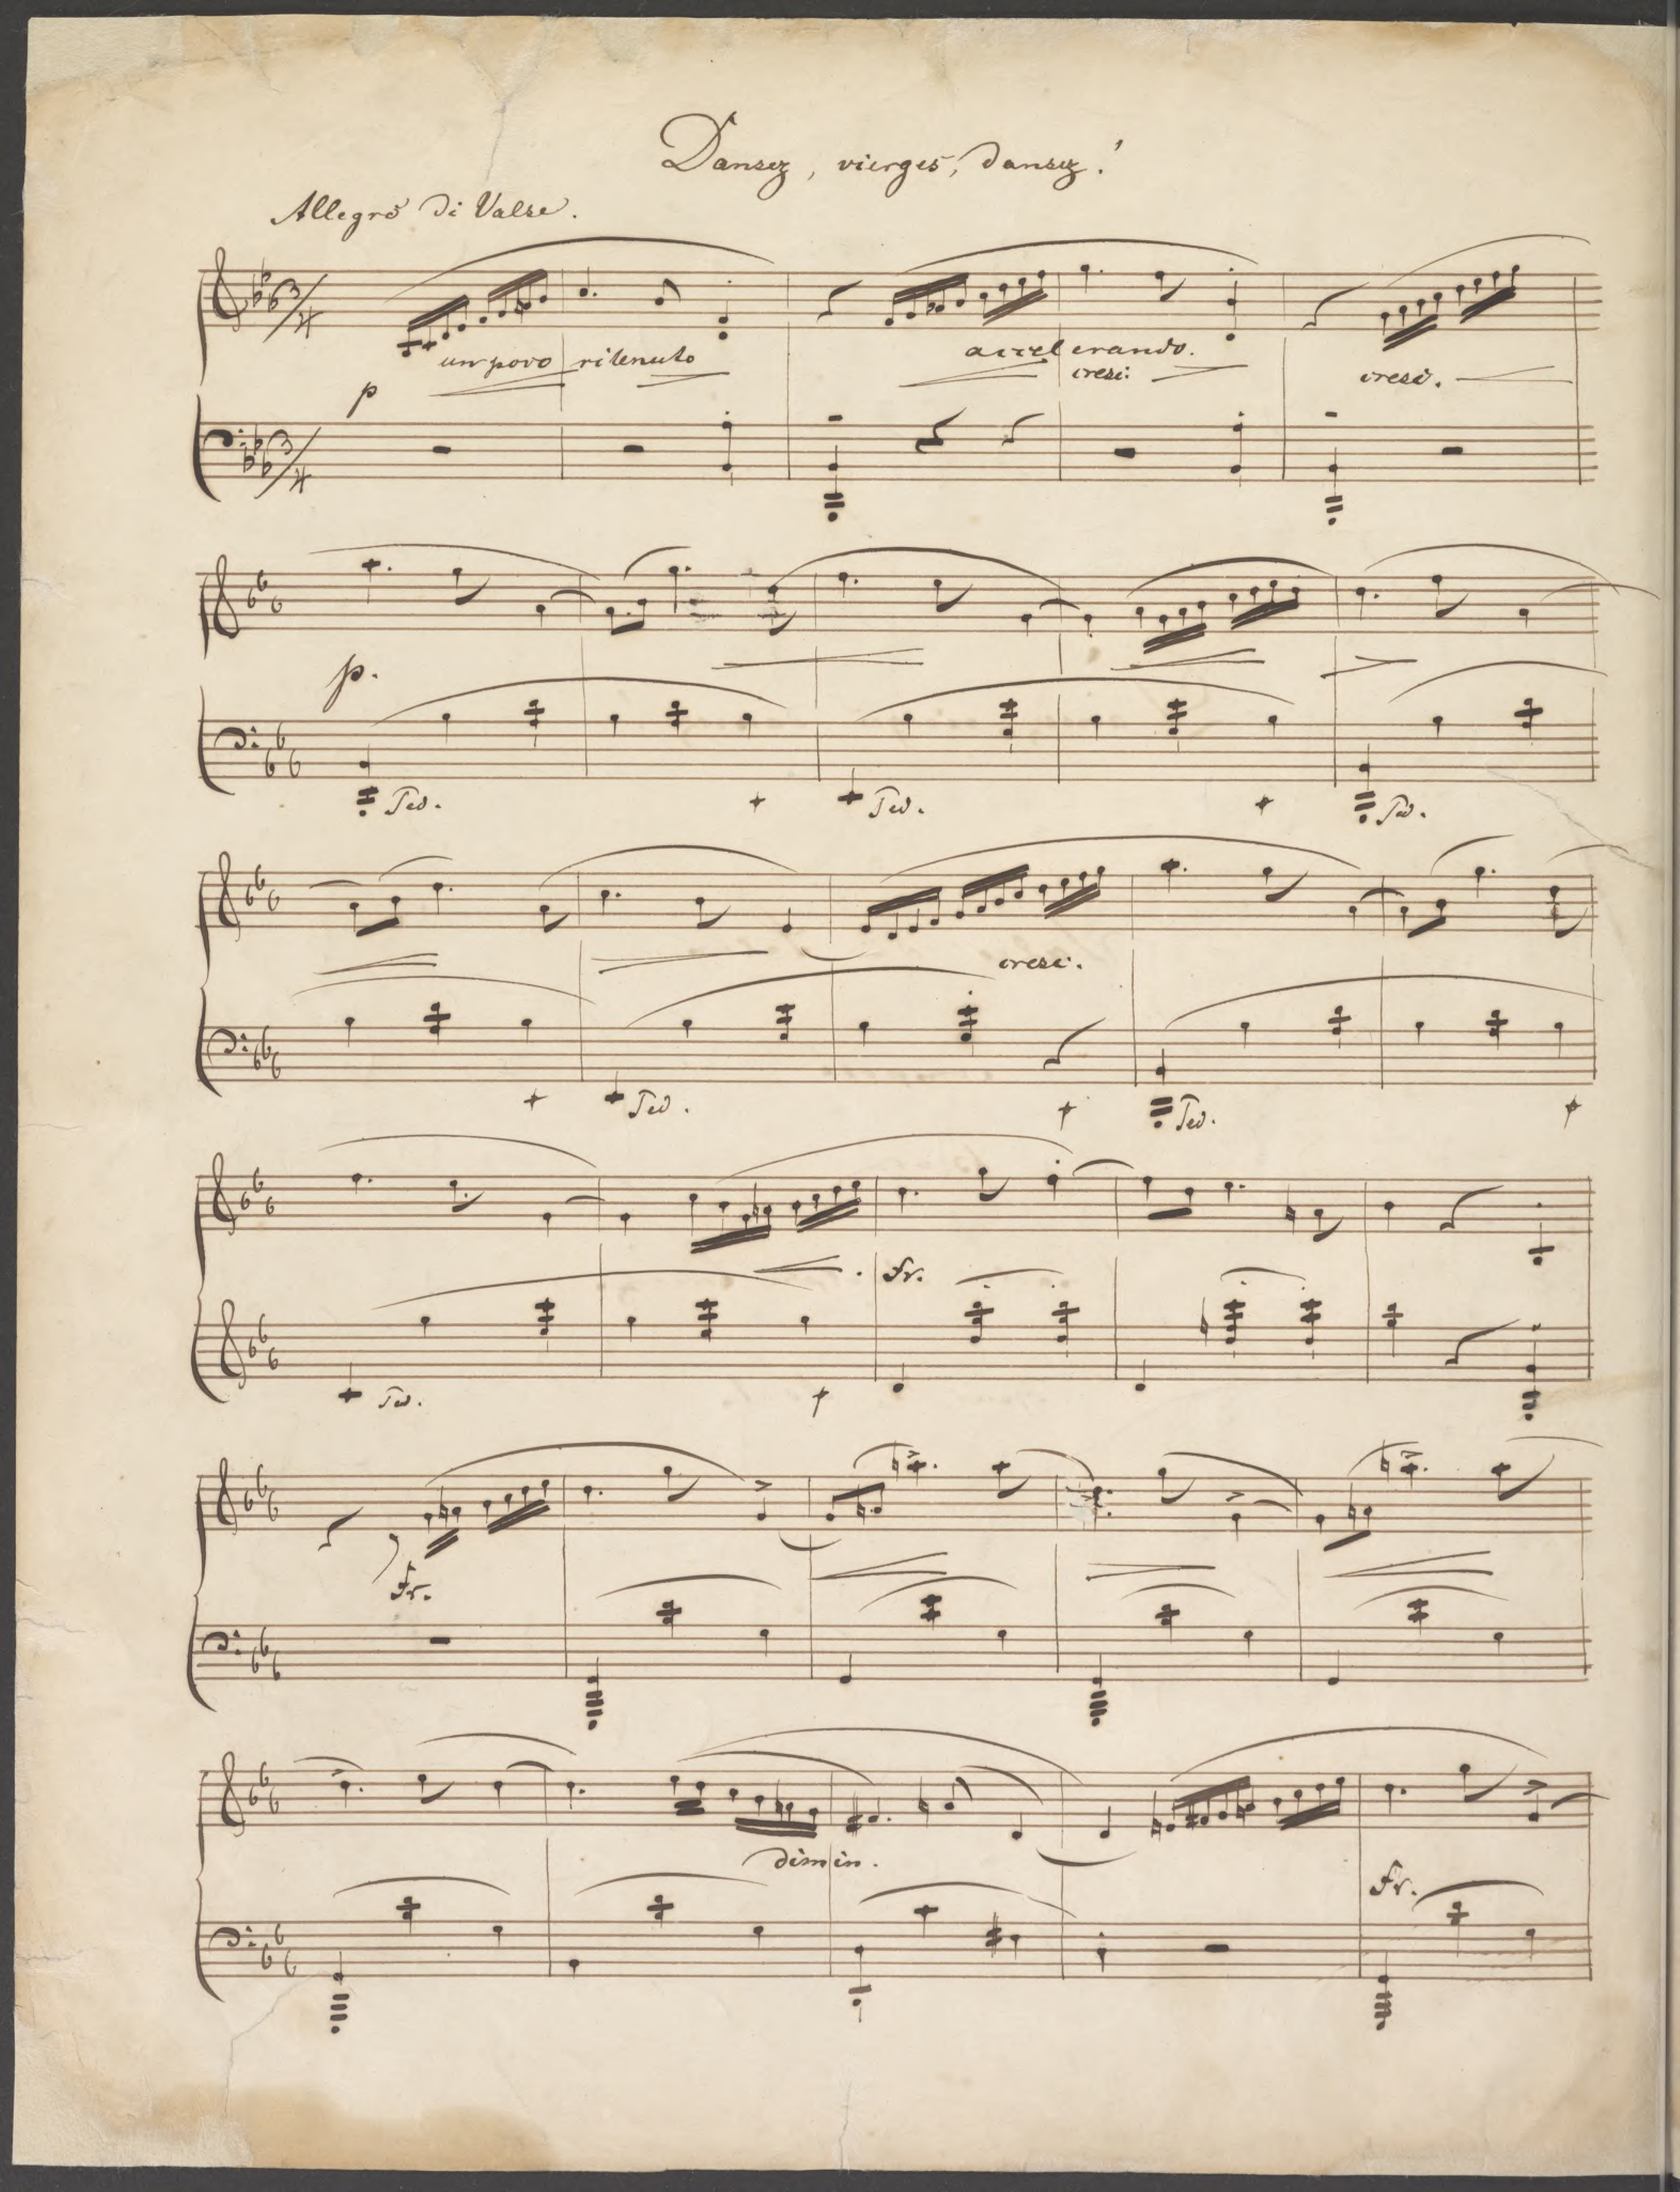 Dansez, vierges, dansez!
Allegro di Valse.
3/4
un poco ritenuto
accelerando.
p
cresc:
cresc.
3/4
p.
Ped.
Ped.
Ped.
cresc.
Ped.
Ped.
Fz.
Ped.
Fz.
dimin.
Fz.